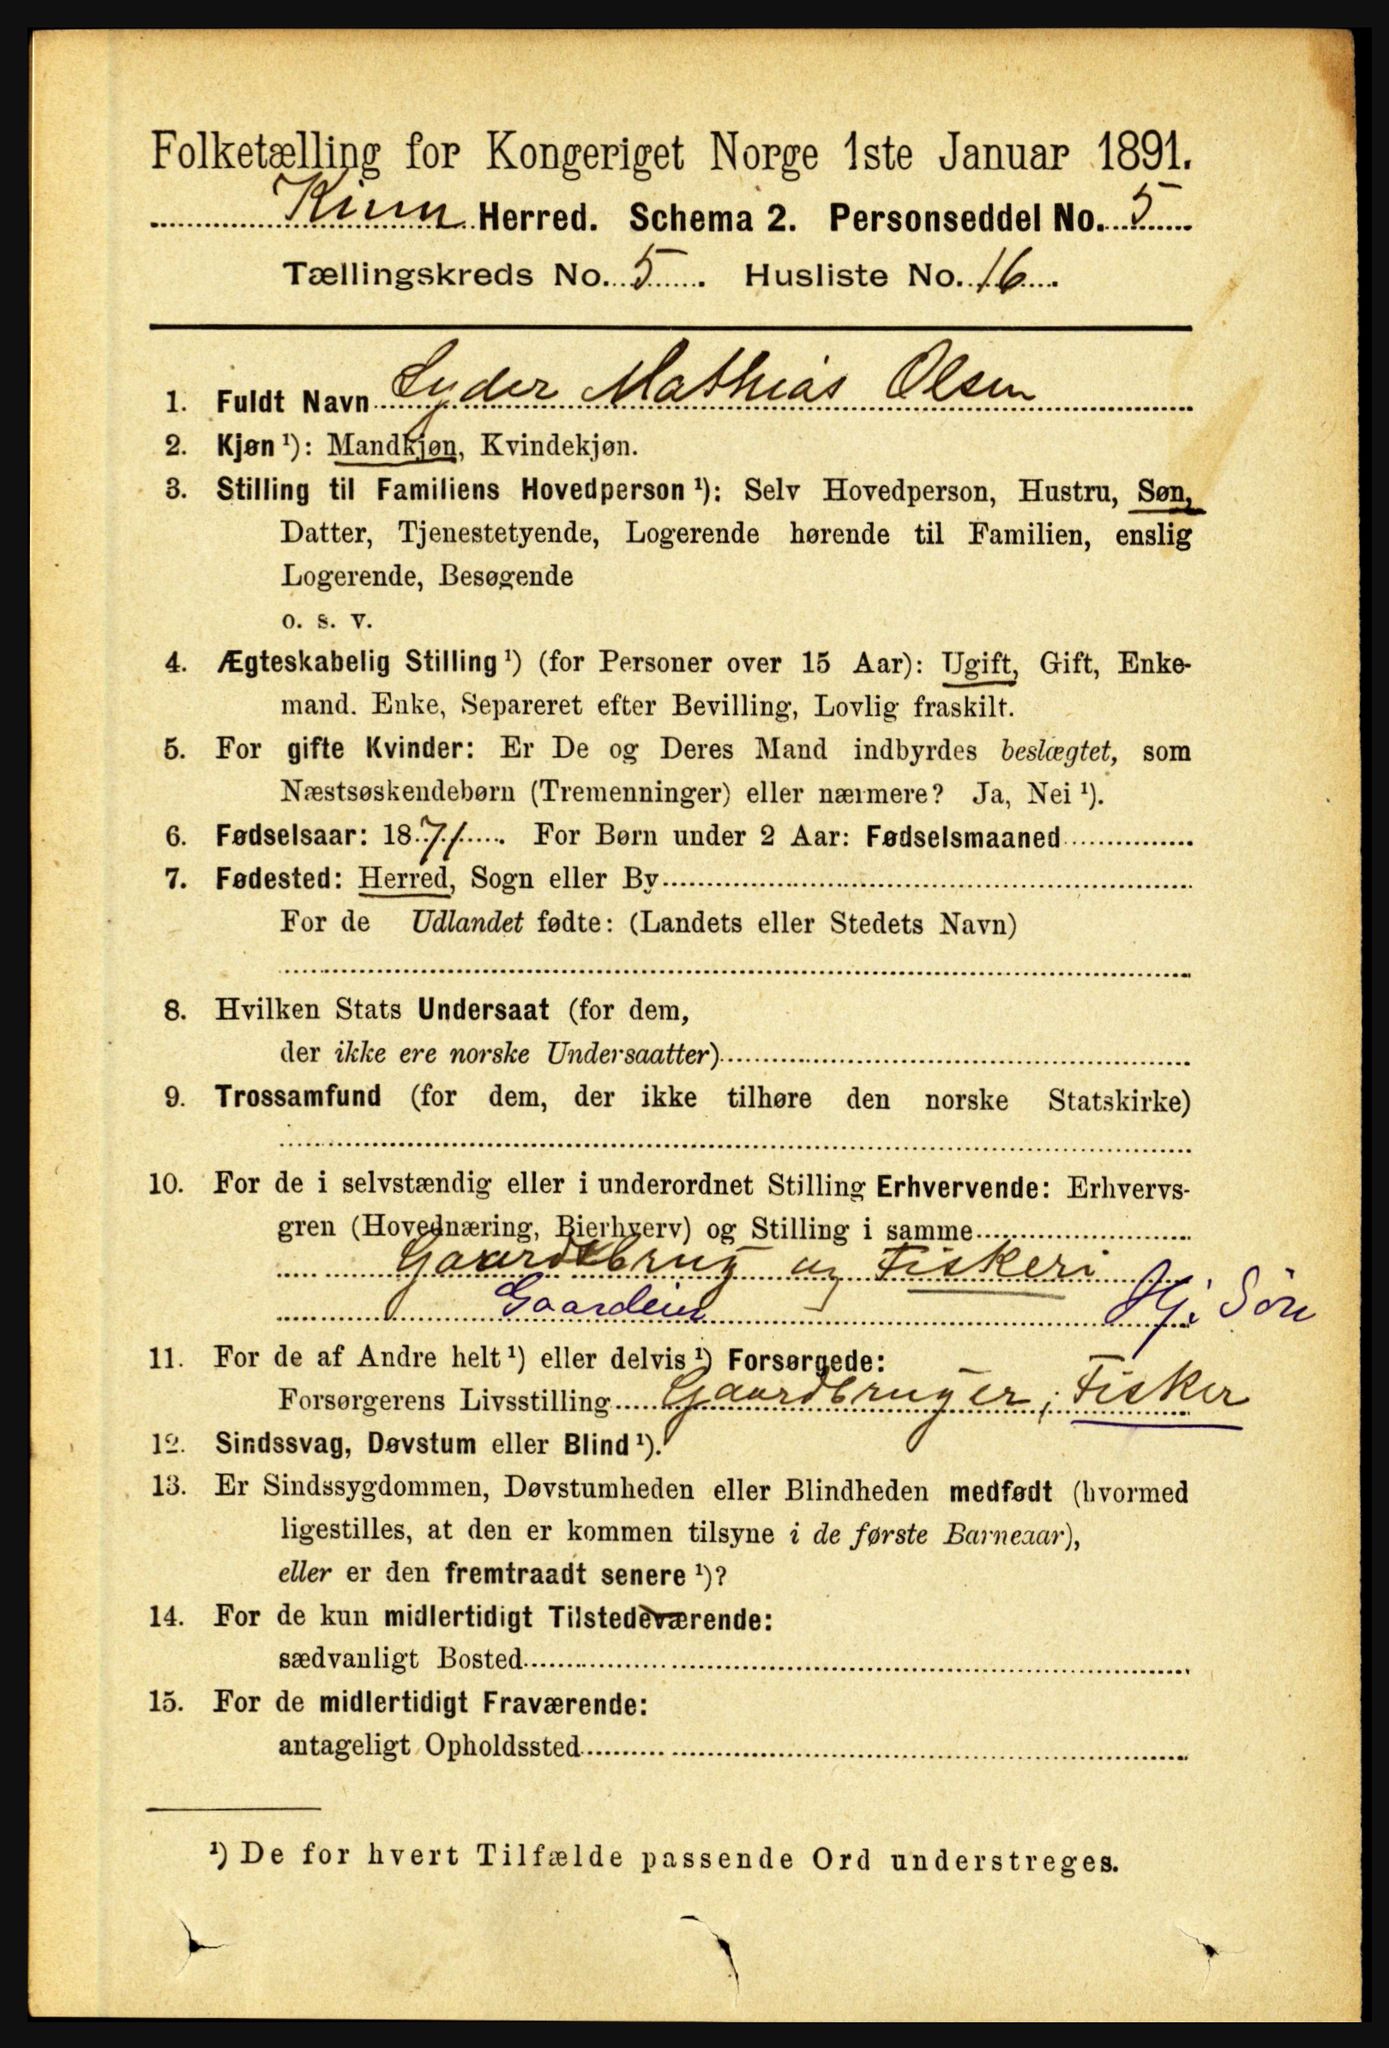 Folketælling for Kongeriget Norge 1ste Januar 1891.
Kinn Herred. Schema 2. Personseddel No. 5
Tællingskreds No. 5. Husliste No. 16.
1. Fuldt Navn Lyder Mathias Olsen
2. Kjøn ¹): Mandkjøn, Kvindekjøn.
3. Stilling til Familiens Hovedperson ¹): Selv Hovedperson, Hustru, Søn,
Datter, Tjenestetyende, Logerende hørende til Familien, enslig
Logerende, Besøgende
o. s. v.
4. Ægteskabelig Stilling ¹) (for Personer over 15 Aar): Ugift, Gift, Enke-
mand. Enke, Separeret efter Bevilling, Lovlig fraskilt.
5. For gifte Kvinder: Er De og Deres Mand indbyrdes beslægtet, som
Næstsøskendebørn (Tremenninger) eller nærmere? Ja, Nei ¹).
6. Fødselsaar: 1871. For Børn under 2 Aar: Fødselsmaaned
7. Fødested: Herred, Sogn eller By
For de Udlandet fødte: (Landets eller Stedets Navn)
8. Hvilken Stats Undersaat (for dem,
der ikke ere norske Undersaatter)
9. Trossamfund (for dem, der ikke tilhøre den norske Statskirke)
10. For de i selvstændig eller i underordnet Stilling Erhvervende: Erhvervs-
gren (Hovednæring, Bierhverv) og Stilling i samme
Gaardsbrug og Fiskeri
Gaardeier Hj. Sön
11. For de af Andre helt ¹) eller delvis ¹) Forsørgede:
Forsørgerens Livsstilling Gaardbruger, Fisker
12. Sindssvag, Døvstum eller Blind ¹).
13. Er Sindssygdommen, Døvstumheden eller Blindheden medfødt (hvormed
ligestilles, at den er kommen tilsyne i de første Barneaar),
eller er den fremtraadt senere ¹)?
14. For de kun midlertidigt Tilstedeværende:
sædvanligt Bosted
15. For de midlertidigt Fraværende:
antageligt Opholdssted
¹) De for hvert Tilfælde passende Ord understreges.